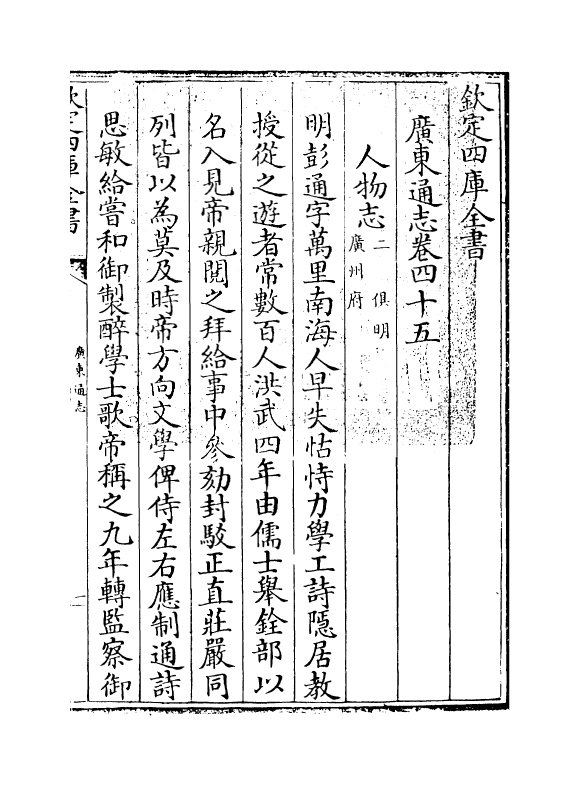 欽定四庫全書
廣東通志卷四十五
人物志二 俱明
廣州府
明彭通字萬里南海人早失怙恃力學工詩隱居教
授從之遊者常數百人洪武四年由儒士舉銓部以
名入見帝親閱之拜給事中參劾封駁正直莊嚴同
列皆以為莫及時帝方向文學俾侍左右應制通詩
思敏給嘗和御製醉學士歌帝稱之九年轉監察御
欽定四庫全書
廣東通志
一